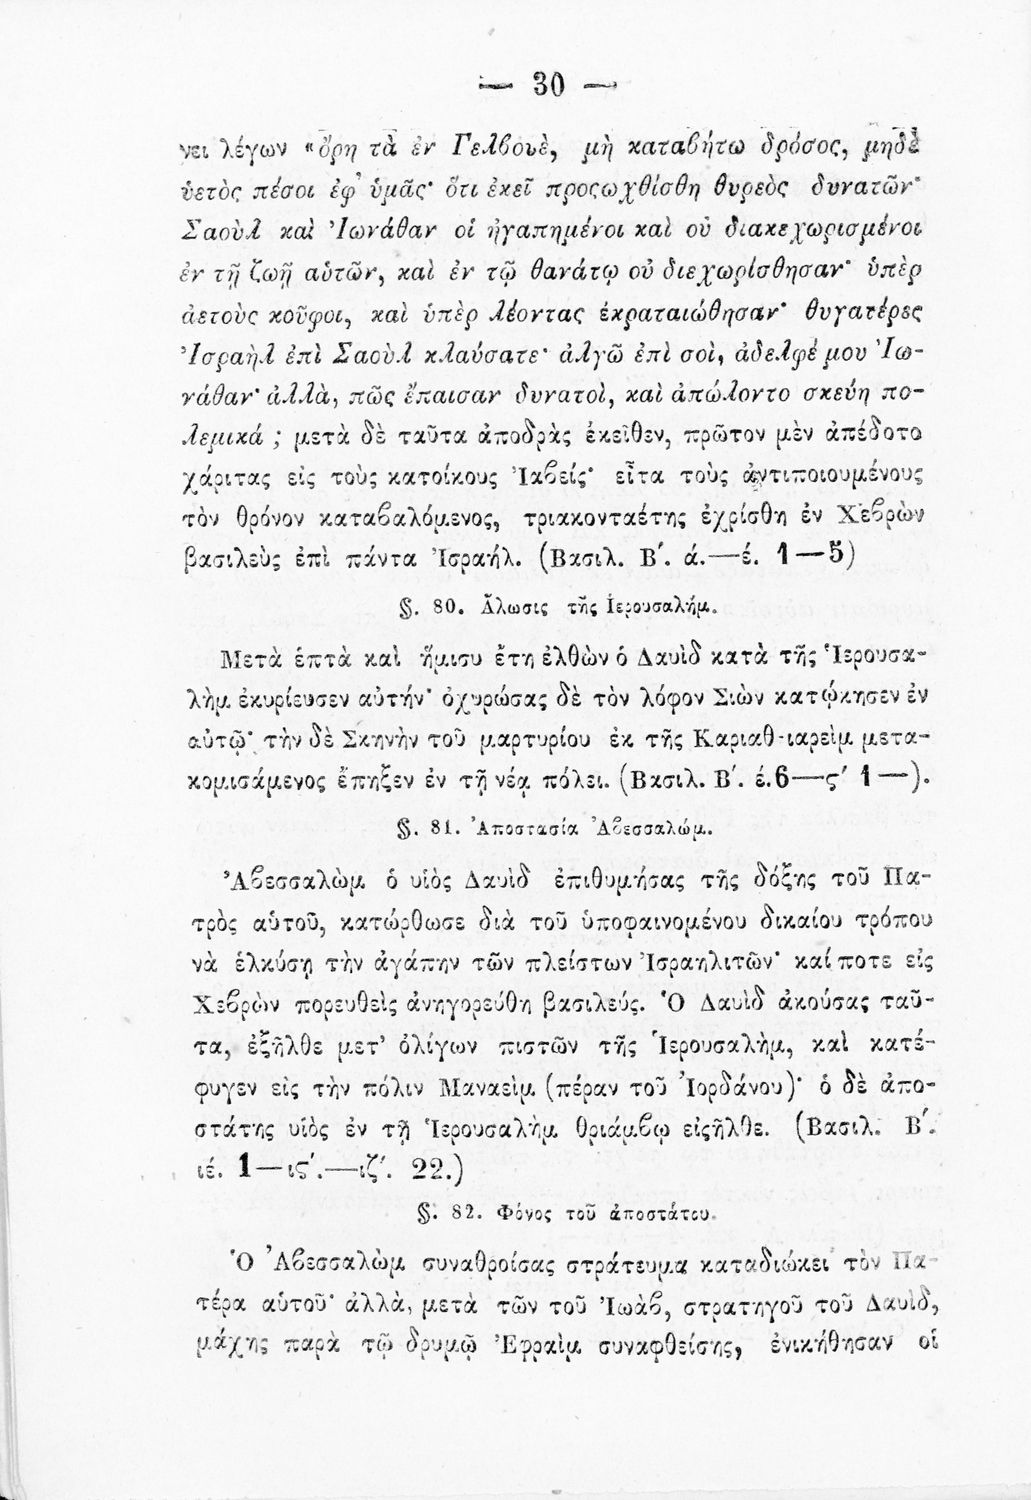 — 30 —
νει λέγων «ὄρη τὰ ἐν Γελβουὲ, μὴ καταβήτω δρόσος, μηδὲ
ὑετὸς πέσοι ἐφ᾽ ὑμᾶς· ὅτι ἐκεῖ προςωχθίσθη θυρεὸς δυνατῶν·
Σαοὺλ καὶ Ἰωνάθαν οἱ ἠγαπημένοι καὶ οὐ διακεχωρισμένοι
ἐν τῇ ζωῇ αὑτῶν, καὶ ἐν τῷ θανάτῳ οὐ διεχωρίσθησαν· ὑπὲρ
ἀετοὺς κοῦφοι, καὶ ὑπὲρ λέοντας ἐκραταιώθησαν· θυγατέρες
Ἰσραὴλ ἐπὶ Σαοὺλ κλαύσατε· ἀλγῶ ἐπὶ σοὶ, ἀδελφέ μου Ἰω-
νάθαν· ἀλλὰ, πῶς ἔπαισαν δυνατοὶ, καὶ ἀπώλοντο σκεύη πο-
λεμικά ; μετὰ δὲ ταῦτα ἀποδρὰς ἐκεῖθεν, πρῶτον μὲν ἀπέδοτο
χάριτας εἰς τοὺς κατοίκους Ἰαβείς· εἶτα τοὺς ἀντιποιουμένους
τὸν θρόνον καταβαλόμενος, τριακονταέτης ἐχρίσθη ἐν Χεβρὼν
βασιλεὺς ἐπὶ πάντα Ἰσραήλ. (Βασιλ. Β΄. ά.—έ. 1—5)
§. 80. Ἅλωσις τῆς Ἱερουσαλήμ.
Μετὰ ἑπτὰ καὶ ἥμισυ ἔτη ἐλθὼν ὁ Δαυὶδ κατὰ τῆς Ἱερουσα-
λὴμ ἐκυρίευσεν αὐτήν· ὀχυρώσας δὲ τὸν λόφον Σιὼν κατῴκησεν ἐν
αὐτῷ· τὴν δὲ Σκηνὴν τοῦ μαρτυρίου ἐκ τῆς Καριαθ-ιαρεὶμ μετα-
κομισάμενος ἔπηξεν ἐν τῇ νέᾳ πόλει. (Βασιλ. Β΄. έ.6—ς΄ 1—).
§. 81. Ἀποστασία Ἀβεσσαλώμ.
Ἀβεσσαλὼμ ὁ υἱὸς Δαυὶδ ἐπιθυμήσας τῆς δόξης τοῦ Πα-
τρὸς αὑτοῦ, κατώρθωσε διὰ τοῦ ὑποφαινομένου δικαίου τρόπου
νὰ ἑλκύσῃ τὴν ἀγάπην τῶν πλείστων Ἰσραηλιτῶν· καί ποτε εἰς
Χεβρὼν πορευθεὶς ἀνηγορεύθη βασιλεύς. Ὁ Δαυὶδ ἀκούσας ταῦ-
τα, ἐξῆλθε μετ᾽ ὀλίγων πιστῶν τῆς Ἱερουσαλὴμ, καὶ κατέ-
φυγεν εἰς τὴν πόλιν Μαναεὶμ (πέραν τοῦ Ἰορδάνου)· ὁ δὲ ἀπο-
στάτης υἱὸς ἐν τῇ Ἱερουσαλὴμ θριάμβῳ εἰςῆλθε. (Βασιλ. Β΄.
ιέ. 1—ις΄.—ιζ΄. 22.)
§. 82. Φόνος τοῦ ἀποστάτου.
Ὁ Ἀβεσσαλὼμ συναθροίσας στράτευμα καταδιώκει τὸν Πα-
τέρα αὑτοῦ· ἀλλὰ, μετὰ τῶν τοῦ Ἰωὰβ, στρατηγοῦ τοῦ Δαυὶδ,
μάχης παρὰ τῷ δρυμῷ Ἐφραὶμ συναφθείσης, ἐνικήθησαν οἱ